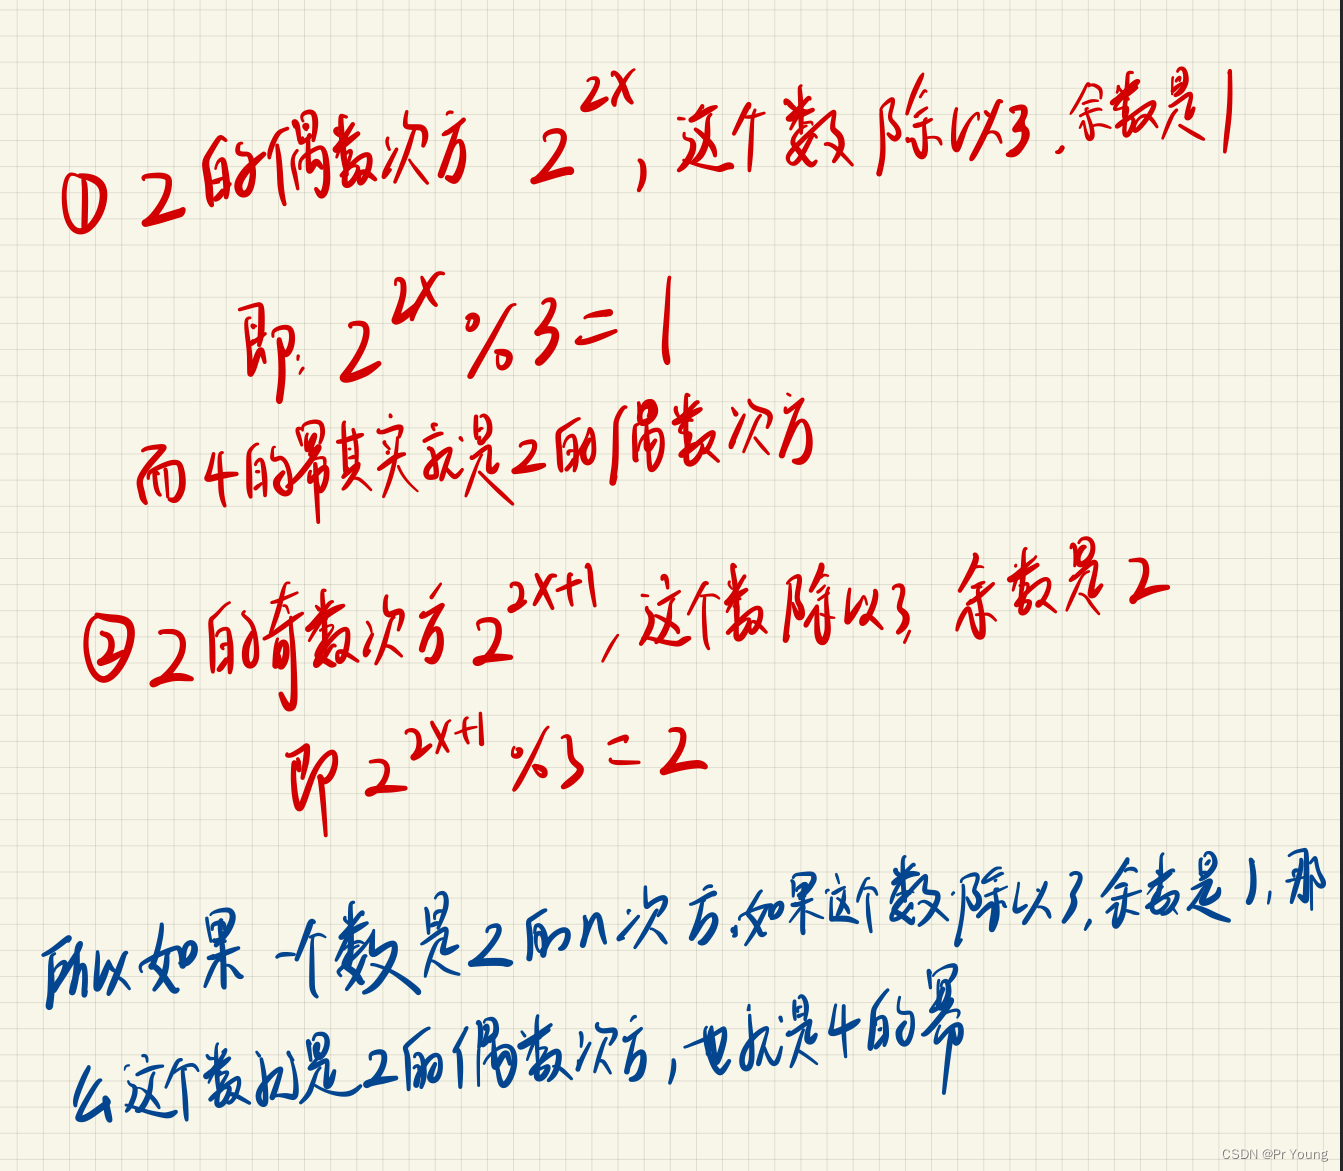 ① 2的偶数次方 2^{2x}，这个数除以3，余数是1
即：2^{2x} % 3 = 1
而4的幂其实就是2的偶数次方
② 2的奇数次方 2^{2x+1}，这个数除以3，余数是2
即 2^{2x+1} % 3 = 2
所以如果一个数是2的n次方，如果这个数除以3，余数是1，那
么这个数就是2的偶数次方，也就是4的幂
CSDN @Pr Young